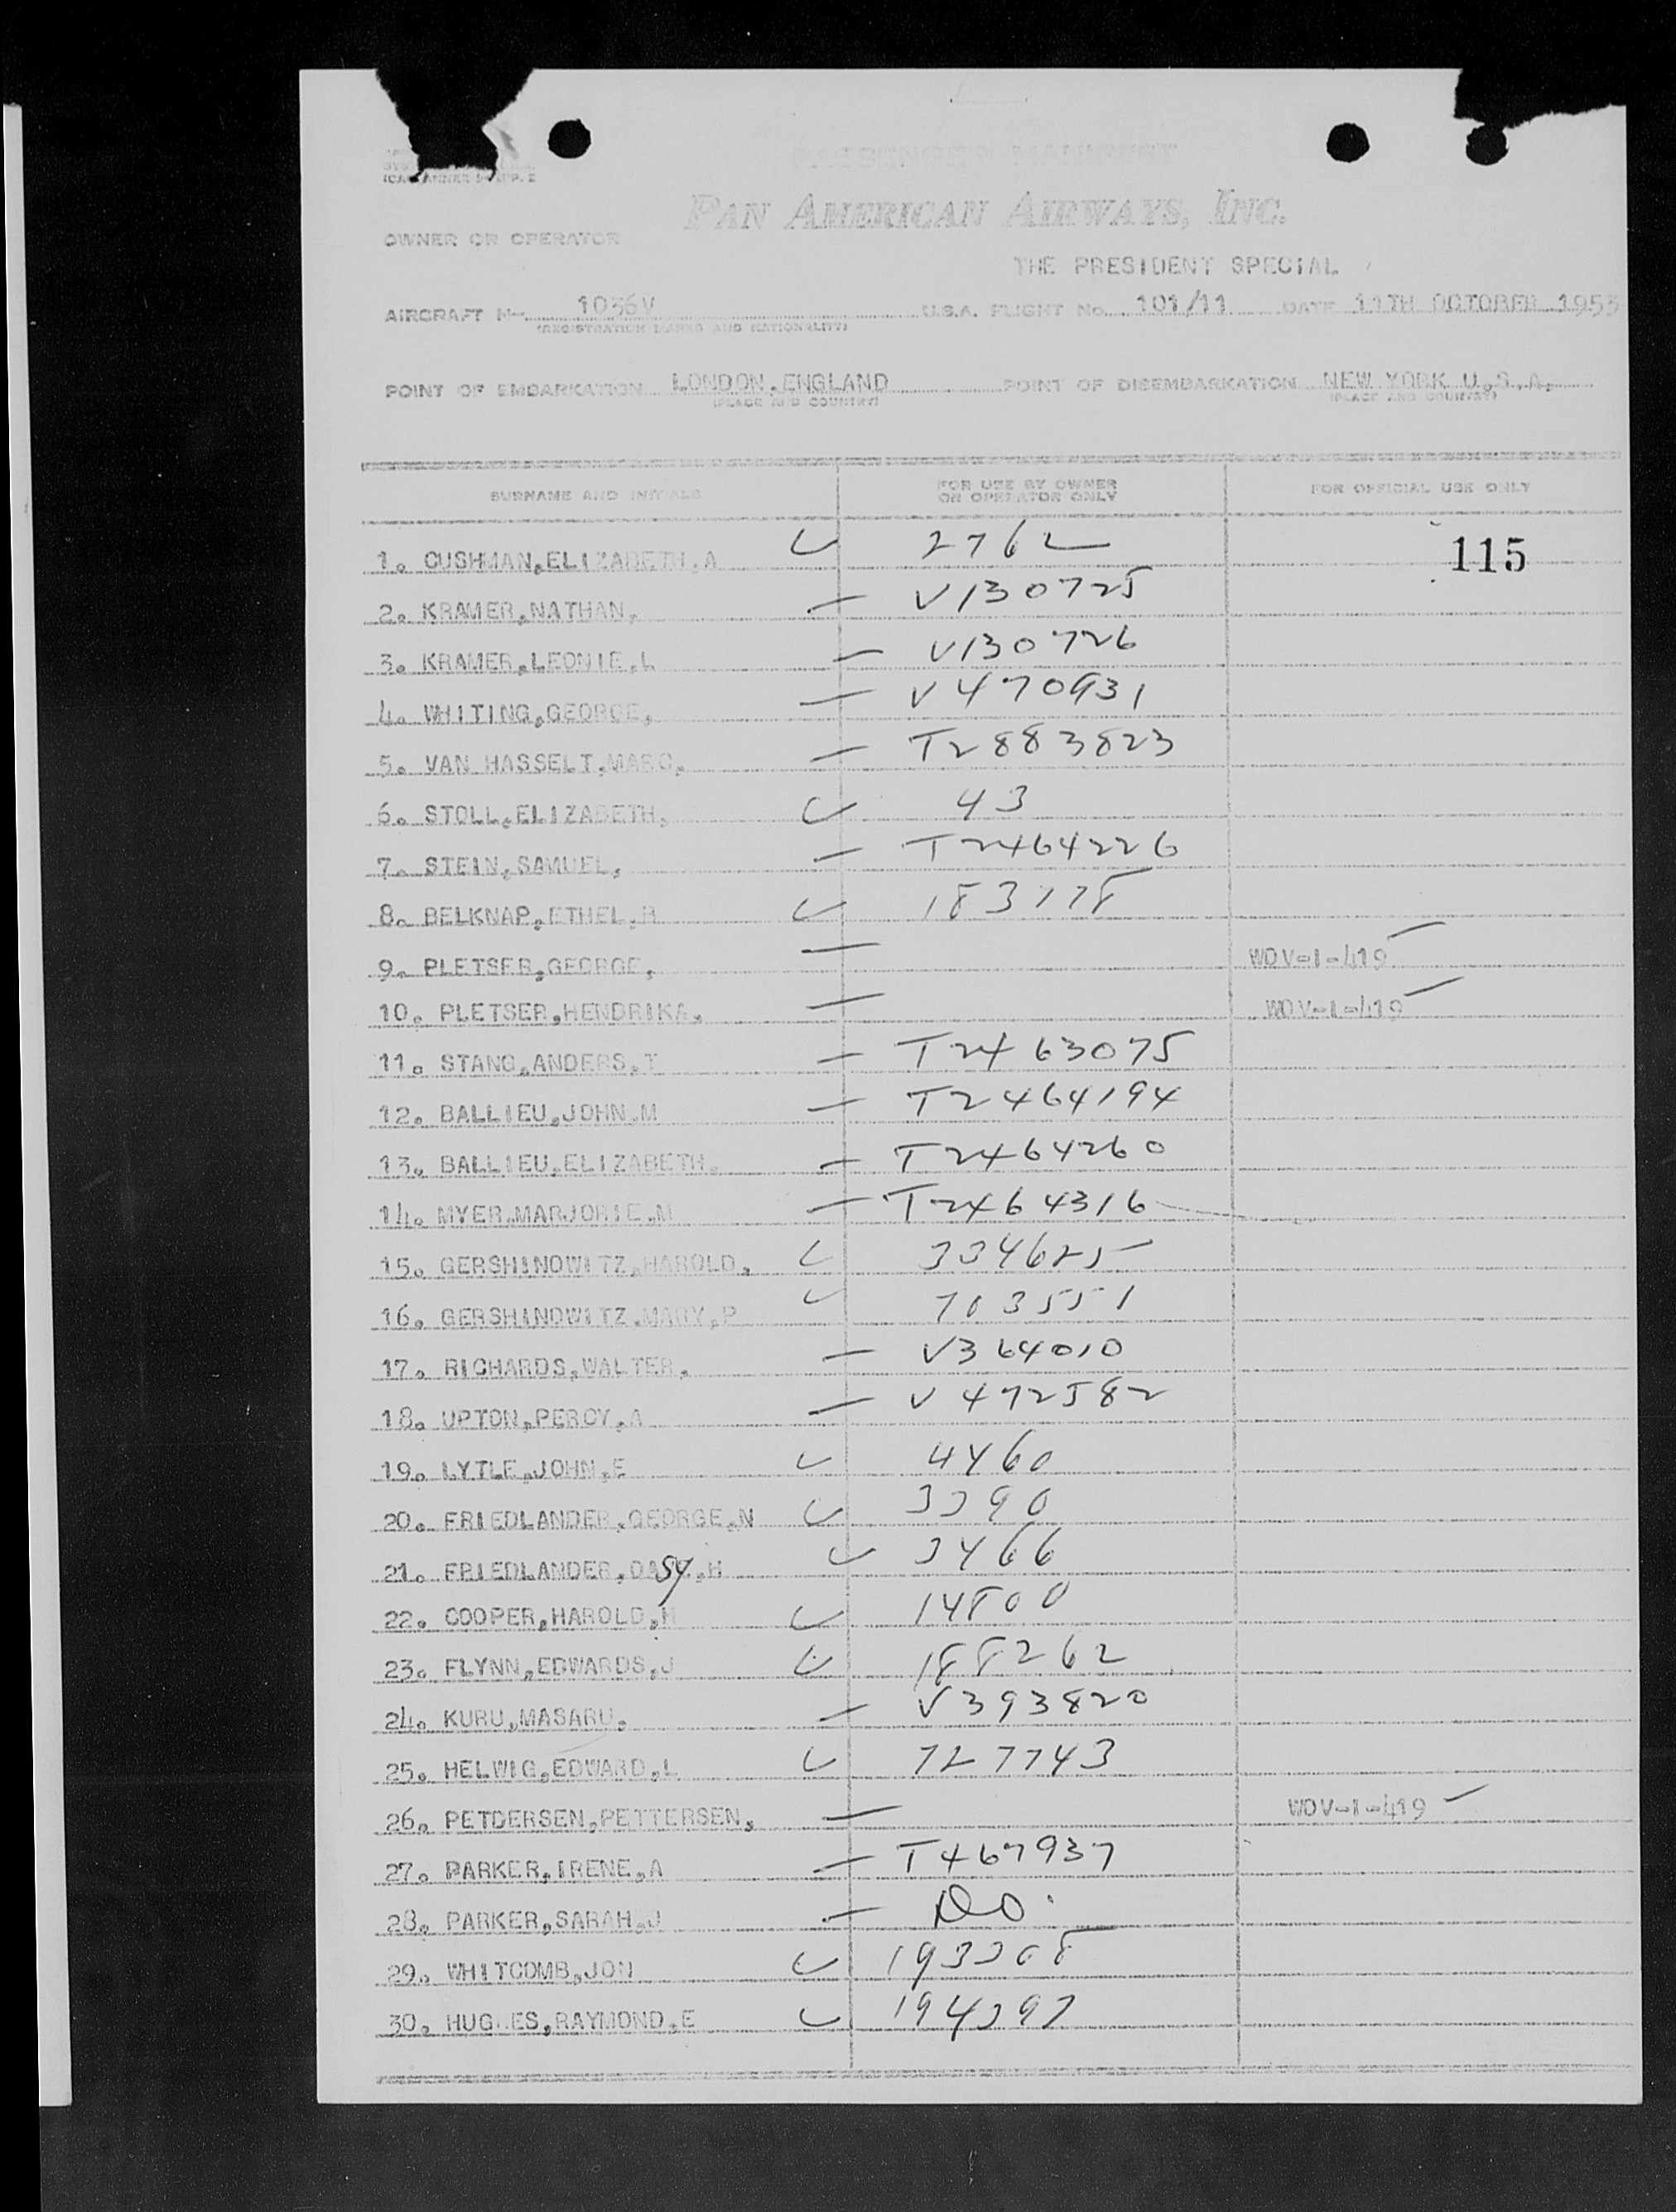 PASSENGER MANIFEST
PAN AMERICAN AIRWAYS, INC.
OWNER OR OPERATOR
THE PRESIDENT SPECIAL
AIRCRAFT N— 1036V U.S.A. FLIGHT No. 101/11 DATE 11TH OCTOBER 1953
(REGISTRATION MARKS AND NATIONALITY)
POINT OF EMBARKATION LONDON.ENGLAND POINT OF DISEMBARKATION NEW YORK U.S.A.
(PLACE AND COUNTRY) (PLACE AND COUNTRY)
SURNAME AND INITIALS FOR USE BY OWNER OR OPERATOR ONLY FOR OFFICIAL USE ONLY
1. CUSHMAN,ELIZABETH,A 2762 115
2. KRAMER,NATHAN, V130725
3. KRAMER,LEONIE,L V130726
4. WHITING,GEORGE, V470931
5. VAN HASSELT,MARC, T2883823
6. STOLL,ELIZABETH, 43
7. STEIN,SAMUEL, T2464226
8. BELKNAP,ETHEL,H 183178
9. PLETSER,GEORGE, WDV-1-419
10. PLETSER,HENDRIKA, WDV-1-419
11. STANG,ANDERS,T T2463075
12. BALLIEU,JOHN,M T2464194
13. BALLIEU,ELIZABETH. T2464260
14. MYER,MARJORIE,M T2464316
15. GERSHINOWITZ,HAROLD, 334625
16. GERSHINOWITZ,MARY,P 703551
17. RICHARDS,WALTER, V364010
18. UPTON,PERCY,A V472582
19. LYTLE,JOHN,E 4460
20. FRIEDLANDER,GEORGE,N 3390
21. FRIEDLANDER,DAISY,H 3466
22. COOPER,HAROLD,H 14800
23. FLYNN,EDWARDS,J 188262
24. KURU,MASARU. V393820
25. HELWIG,EDWARD,L 727743
26. PETDERSEN,PETTERSEN, WDV-1-419
27. PARKER,IRENE,A T467937
28. PARKER,SARAH,J DO
29. WHITCOMB,JON 193308
30. HUGHES,RAYMOND,E 194397